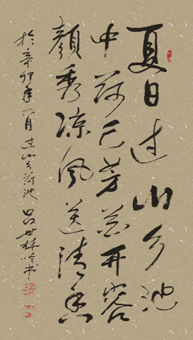 夏日过山乡池
中荷已芳花开容
颜秀凉风送清香
於辛卯年六月过山乡荷池吕世林吟书